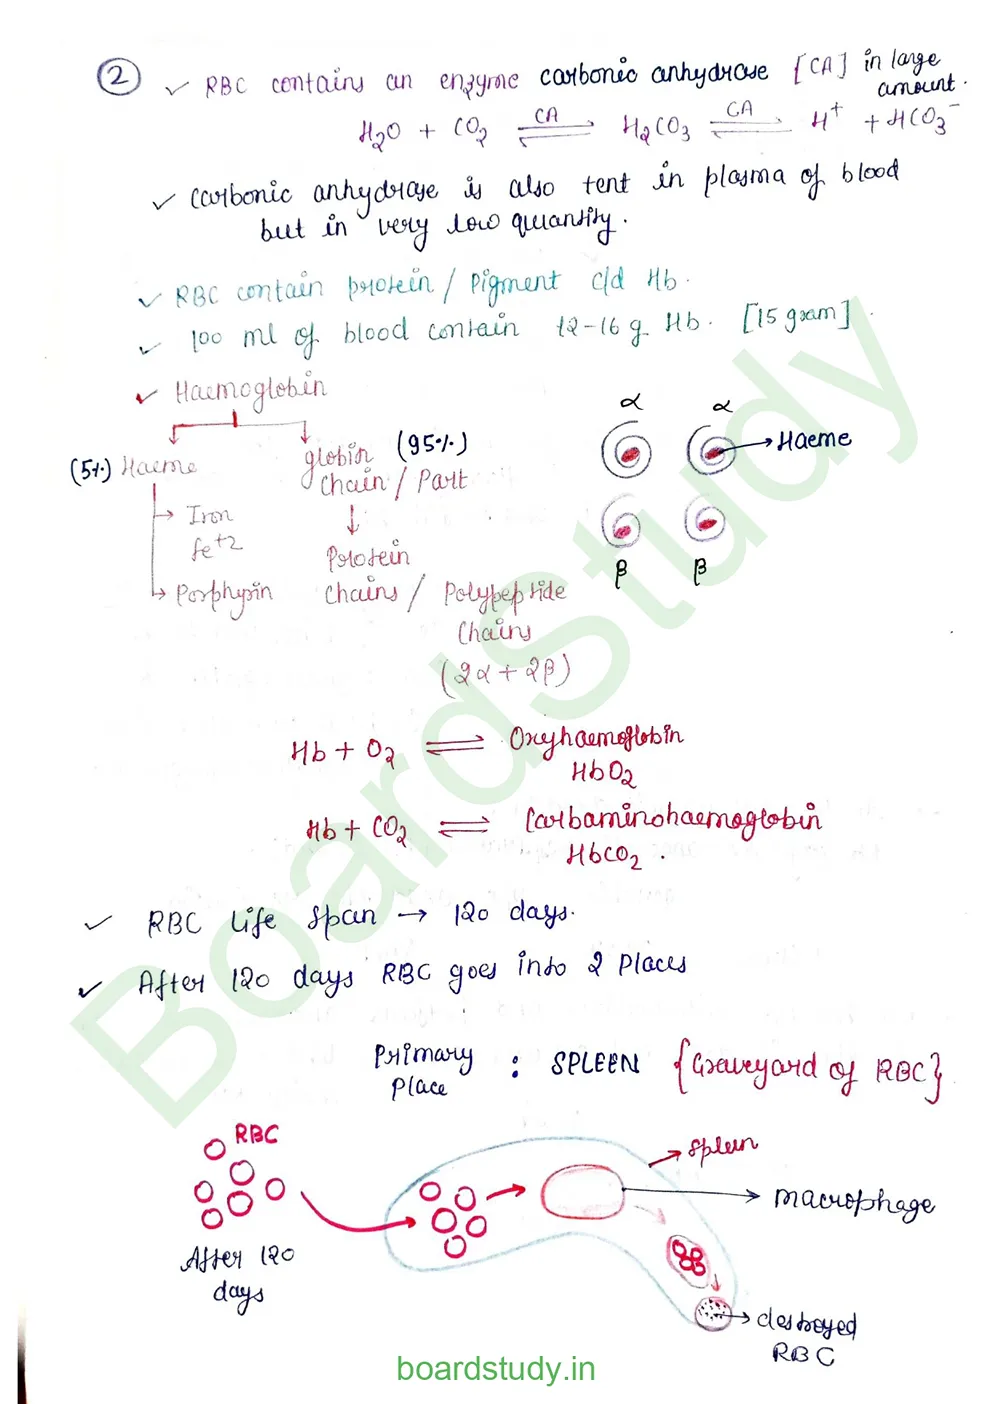 2
✓ RBC contains an enzyme carbonic anhydrase [CA] in large amount.
H2O + CO2 ⇌ H2CO3 ⇌ H+ + HCO3-
CA CA
✓ Carbonic anhydrase is also tent in plasma of blood
but in very low quantity.
✓ RBC contain protein / Pigment c/d Hb.
✓ 100 ml of blood contain 12-16 g Hb. [15 gram].
✓ Haemoglobin
(5%) Haeme
globin (95%)
chain / Part
→ Iron
fe+2
→ Porphyrin
Protein
chains / Polypeptide
Chains
(2α + 2β)
α α
→ Haeme
β β
Hb + O2 ⇌ Oxyhaemoglobin
HbO2
Hb + CO2 ⇌ Carbaminohaemoglobin
HbCO2.
✓ RBC Life Span → 120 days.
✓ After 120 days RBC goes into 2 Places
Primary Place : SPLEEN {Graveyard of RBC}
RBC
After 120
days
→ Spleen
→ macrophage
→ destroyed
RBC
Boardstudy
boardstudy.in